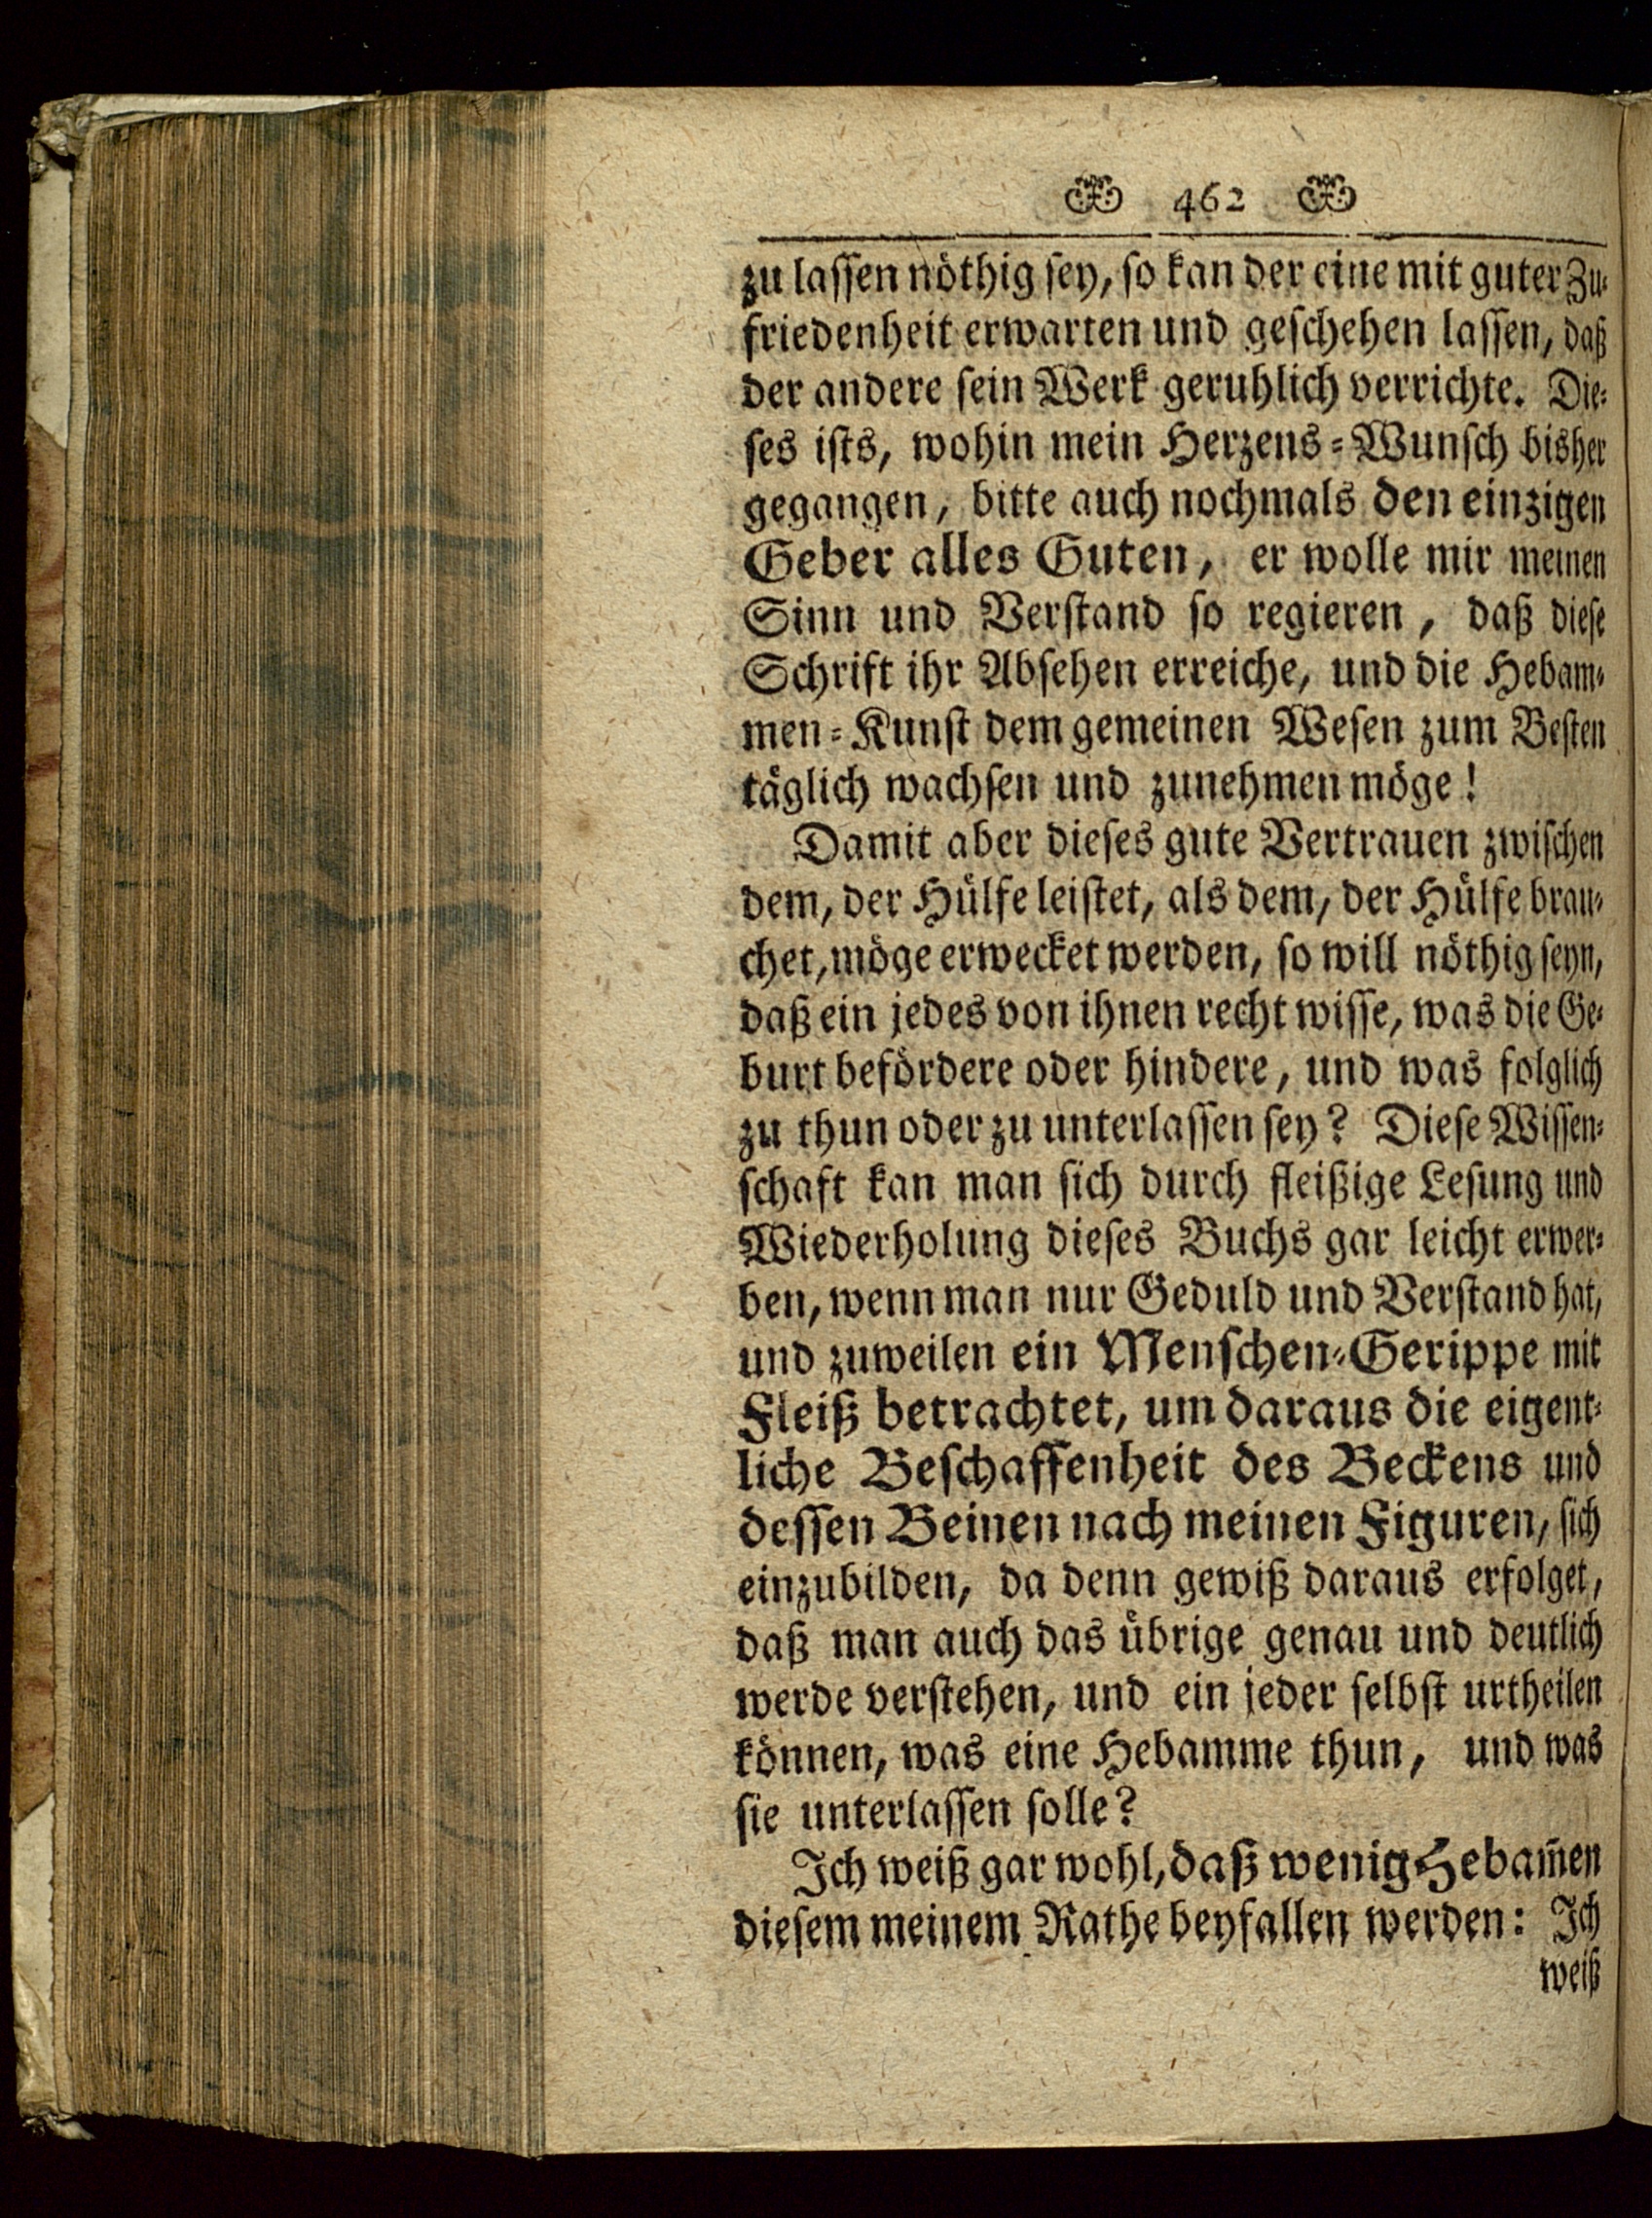 462
zu laſſen nöthig ſey, ſo kan der eine mit guter Zu⸗
friedenheit erwarten und geſchehen laſſen, daß
der andere ſein Werk geruhlich verrichte. Die⸗
ſes iſts, wohin mein Herzens⸗Wunſch bisher
gegangen, bitte auch nochmals den einzigen
Geber alles Guten, er wolle mir meinen
Sinn und Verſtand ſo regieren, daß dieſe
Schrift ihr Abſehen erreiche, und die Hebam⸗
men⸗Kunſt dem gemeinen Weſen zum Beſten
täglich wachſen und zunehmen möge!
Damit aber dieſes gute Vertrauen zwiſchen
dem, der Hülfe leiſtet, als dem, der Hülfe brau⸗
chet, möge erwecket werden, ſo will nöthig ſeyn,
daß ein jedes von ihnen recht wiſſe, was die Ge⸗
burt befördere oder hindere, und was folglich
zu thun oder zu unterlaſſen ſey? Dieſe Wiſſen⸗
ſchaft kan man ſich durch fleißige Leſung und
Wiederholung dieſes Buchs gar leicht erwer⸗
ben, wenn man nur Geduld und Verſtand hat,
und zuweilen ein Menſchen⸗Gerippe mit
Fleiß betrachtet, um daraus die eigent⸗
liche Beſchaffenheit des Beckens und
deſſen Beinen nach meinen Figuren, ſich
einzubilden, da denn gewiß daraus erfolget,
daß man auch das übrige genau und deutlich
werde verſtehen, und ein jeder ſelbſt urtheilen
können, was eine Hebamme thun, und was
ſie unterlaſſen ſolle?
Ich weiß gar wohl, daß wenig Hebam̃en
dieſem meinem Rathe beyfallen werden: Ich
weiß